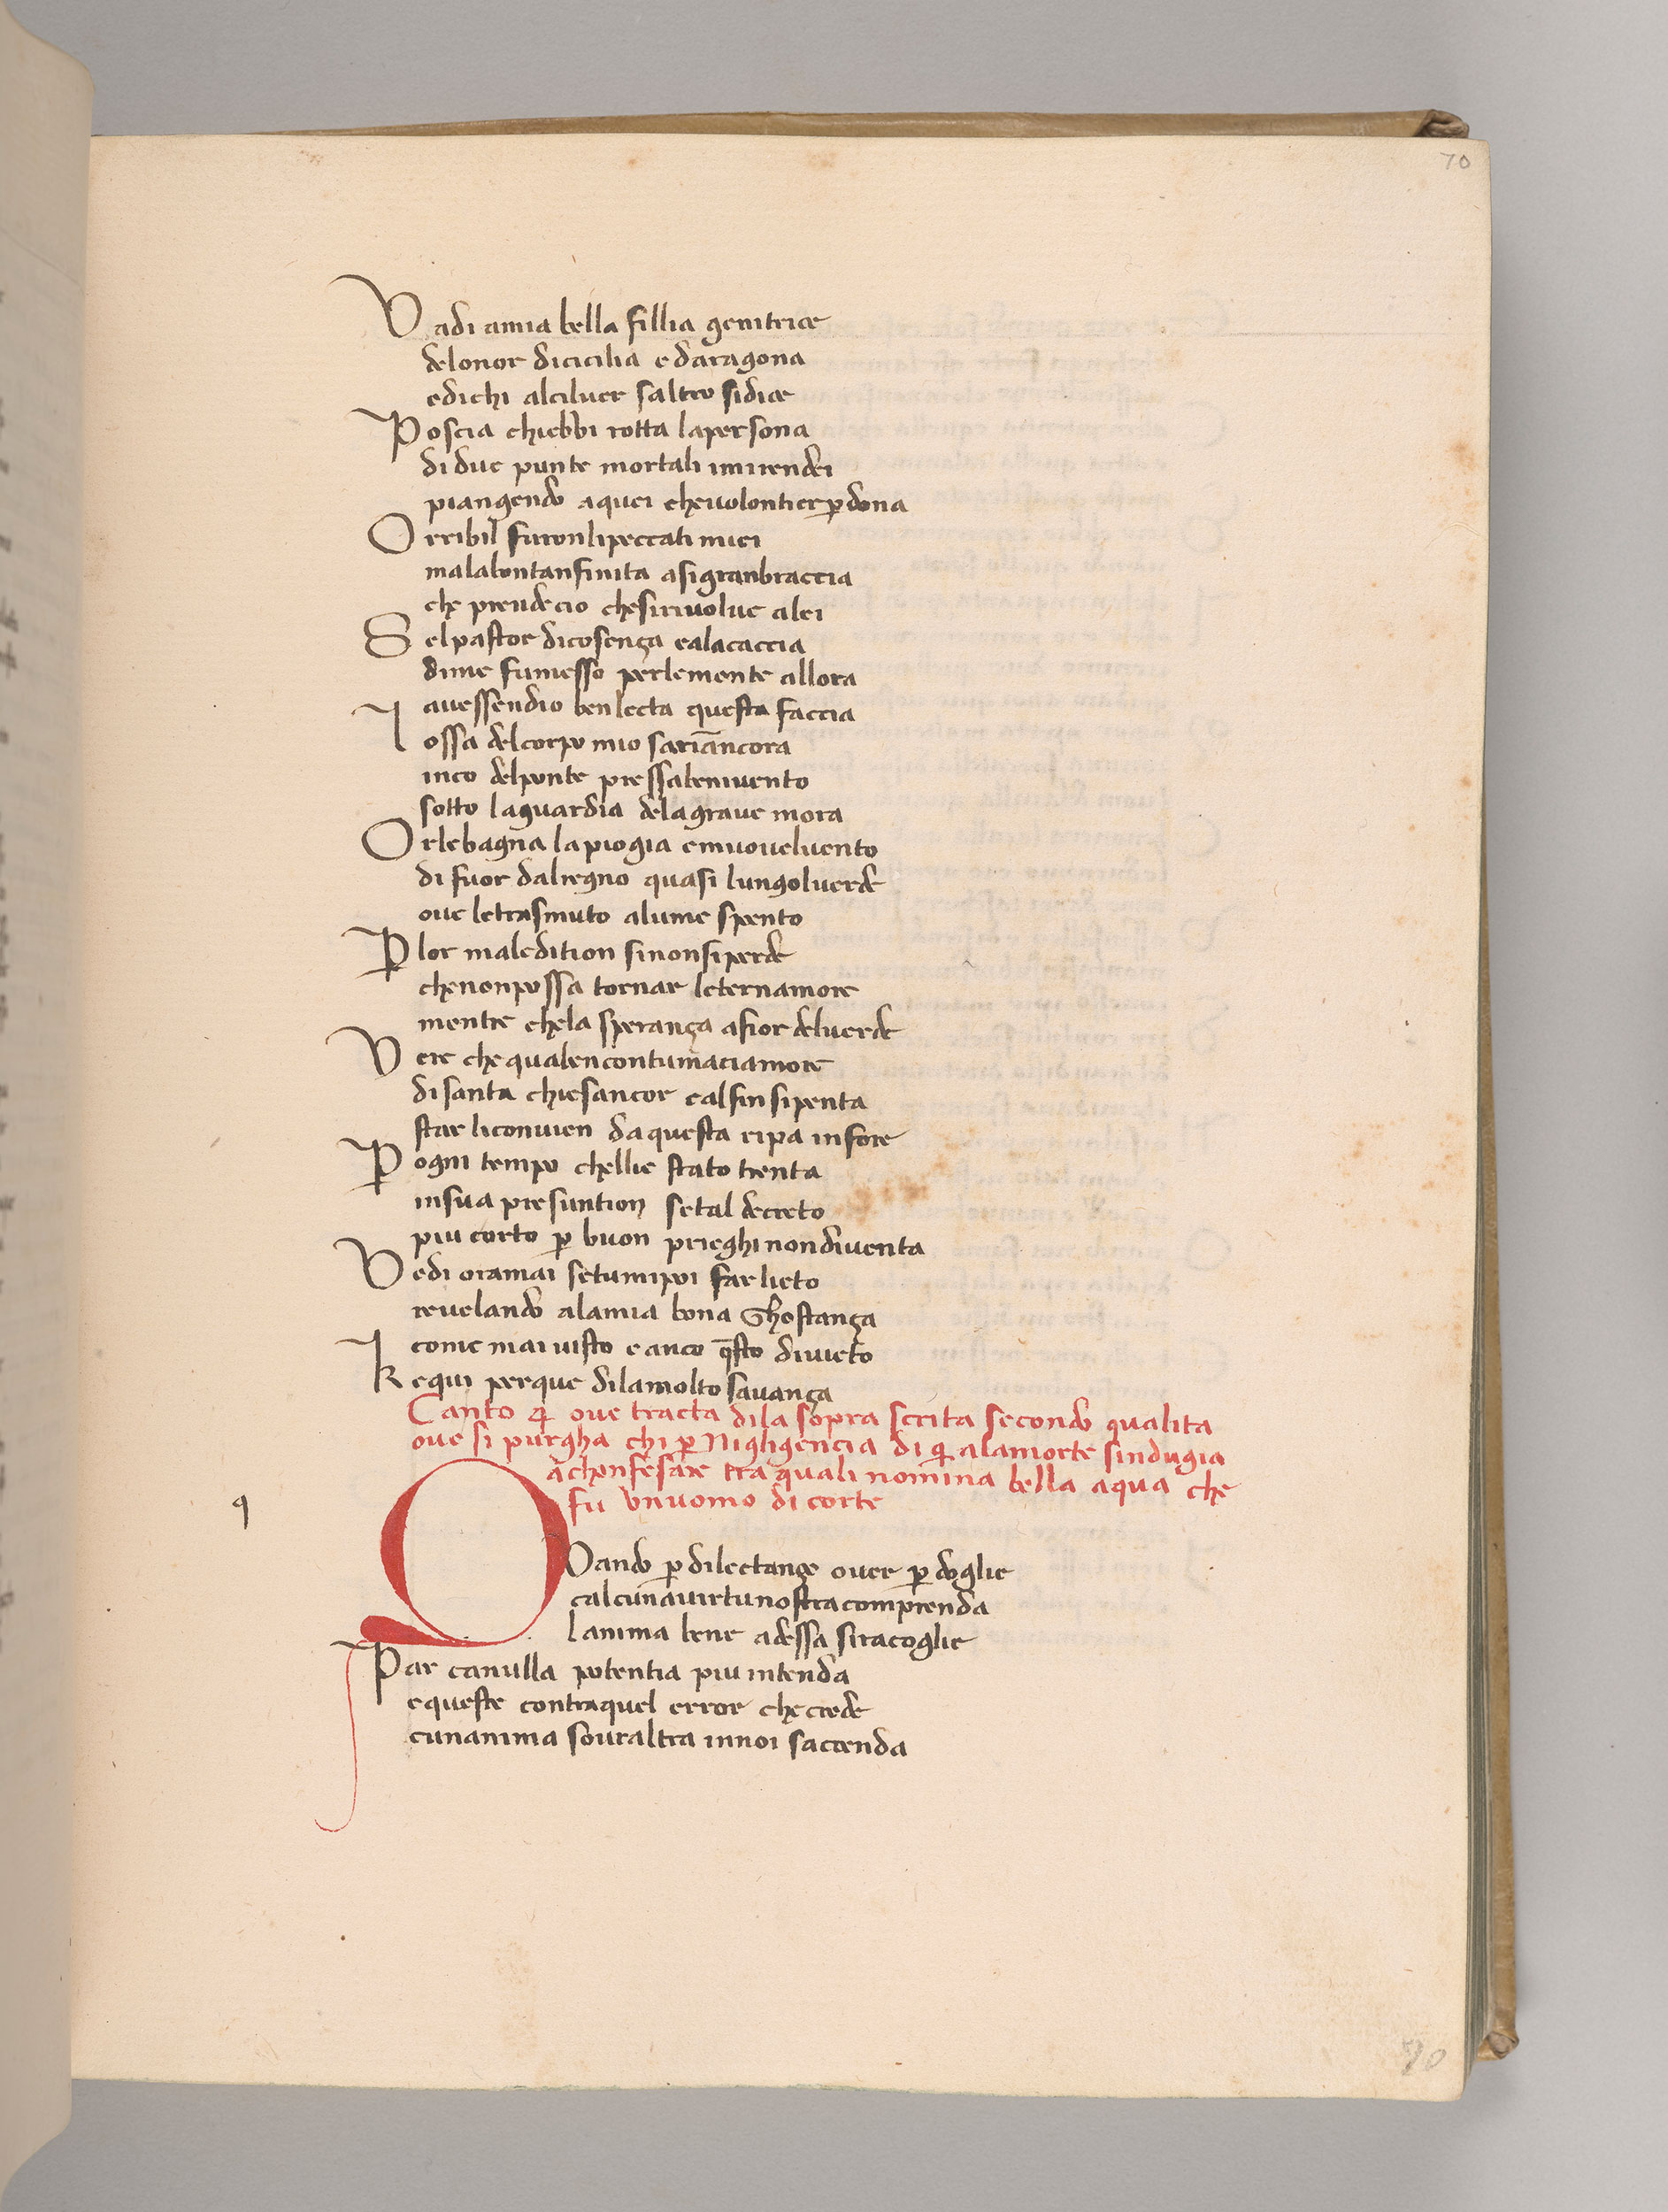 70
Vadi amia bella fillia genitrice
delonor dicicilia e daragona
edichi alciluer saltro sidice
Poscia chiebbi rotta lapersona
di due punte mortali imirendei
piangendo aquei chevolontier ꝑdona
Orribil furonlipeccati miei
malabontanfinita asigranbraccia
che prendecio chesirivolve alei
Selpastor dicosença ealacaccia
dime fumesso perlemente allora
avessendio benlecta questa faccia
Iossa delcorpo mio sariāncora
inco delponte pressabenivento
sotto laguardia delagrave mora
Orlebagna lapiogia emuoveluento
di fuor dalregno quasi lungoluerde
ove letrasmuto alume spento
Ꝑlor maledition sinonsiperde
chenonpossa tornar leternamore
mentre chela sperança afior deluerde
Vere chequalencontumaciamore
disanta chiesancor ealfinsipenta
star liconvien daquesta ripa infore
Ꝑogni tempo chellie stato trenta
insua presuntion setal decreto
piu corto ꝑ buon prieghi nondiventa
Vedi oramai setumipoi farlieto
revelando alamia bona Ghostança
come maivisto e anco q̄sto divieto
Keqvi perque dilamolto savança
Canto 4 ove tracta dila sopra scrita secondo qualita
ove si purgha chi ꝑ Nigligencia di qi alamorte sindugia
achonfesare tra quali nomina bella aqua che
fu vnuomo di corte
q
QVando ꝑ dilectançe over ꝑ doglie
calcunavirtunostracomprenda
lanima bene adessa siracoglie
Par canulla potentia piu intenda
equeste contraquel error checrede
cunanima souraltra innoi saccenda
70